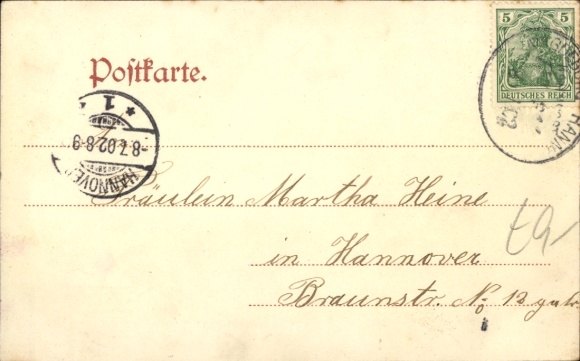 5 5
DEUTSCHES REICH
Postkarte.
* 1 *
-8.7.02.8-9
HANNOVER
Fräulein Martha Heine
in Hannover
Braunstr. No 12